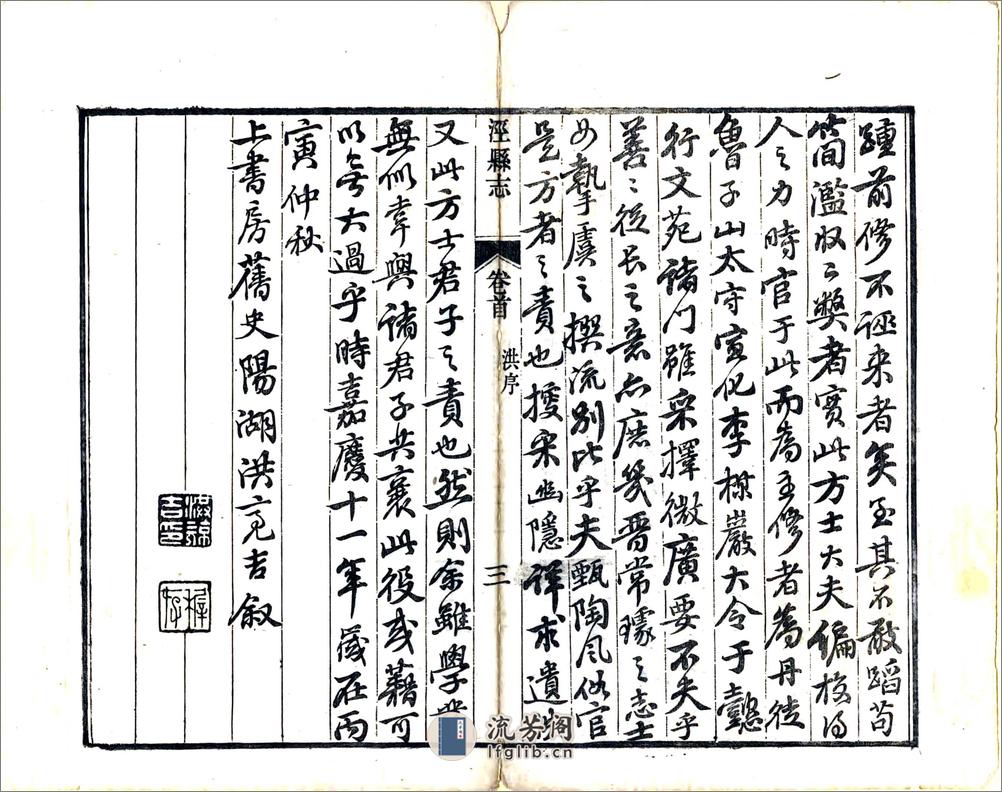 踵前修不誣来者矣至其不敢蹈苟
簡濫収之獘者實此方士大夫偏校得
人之力時官于此而為主修者為丹徒
魯子山太守宣化李棣巖大令于懿
行文苑諸門雖采擇微廣要不失乎
善善從長之意亦庶幾晋常璩之志士
女摯虞之撰流別比乎夫甄陶風俗官
是方者之責也搜采幽隱詳求遺
涇縣志 卷首 洪序 三
又此方士君子之責也然則余雖學
無似幸與諸君子共襄此役或藉可
以無大過乎時嘉慶十一年歲在丙
寅仲秋
上書房舊史陽湖洪亮吉叙
洪亮吉印
稚存
流芳阁
lfglib.cn